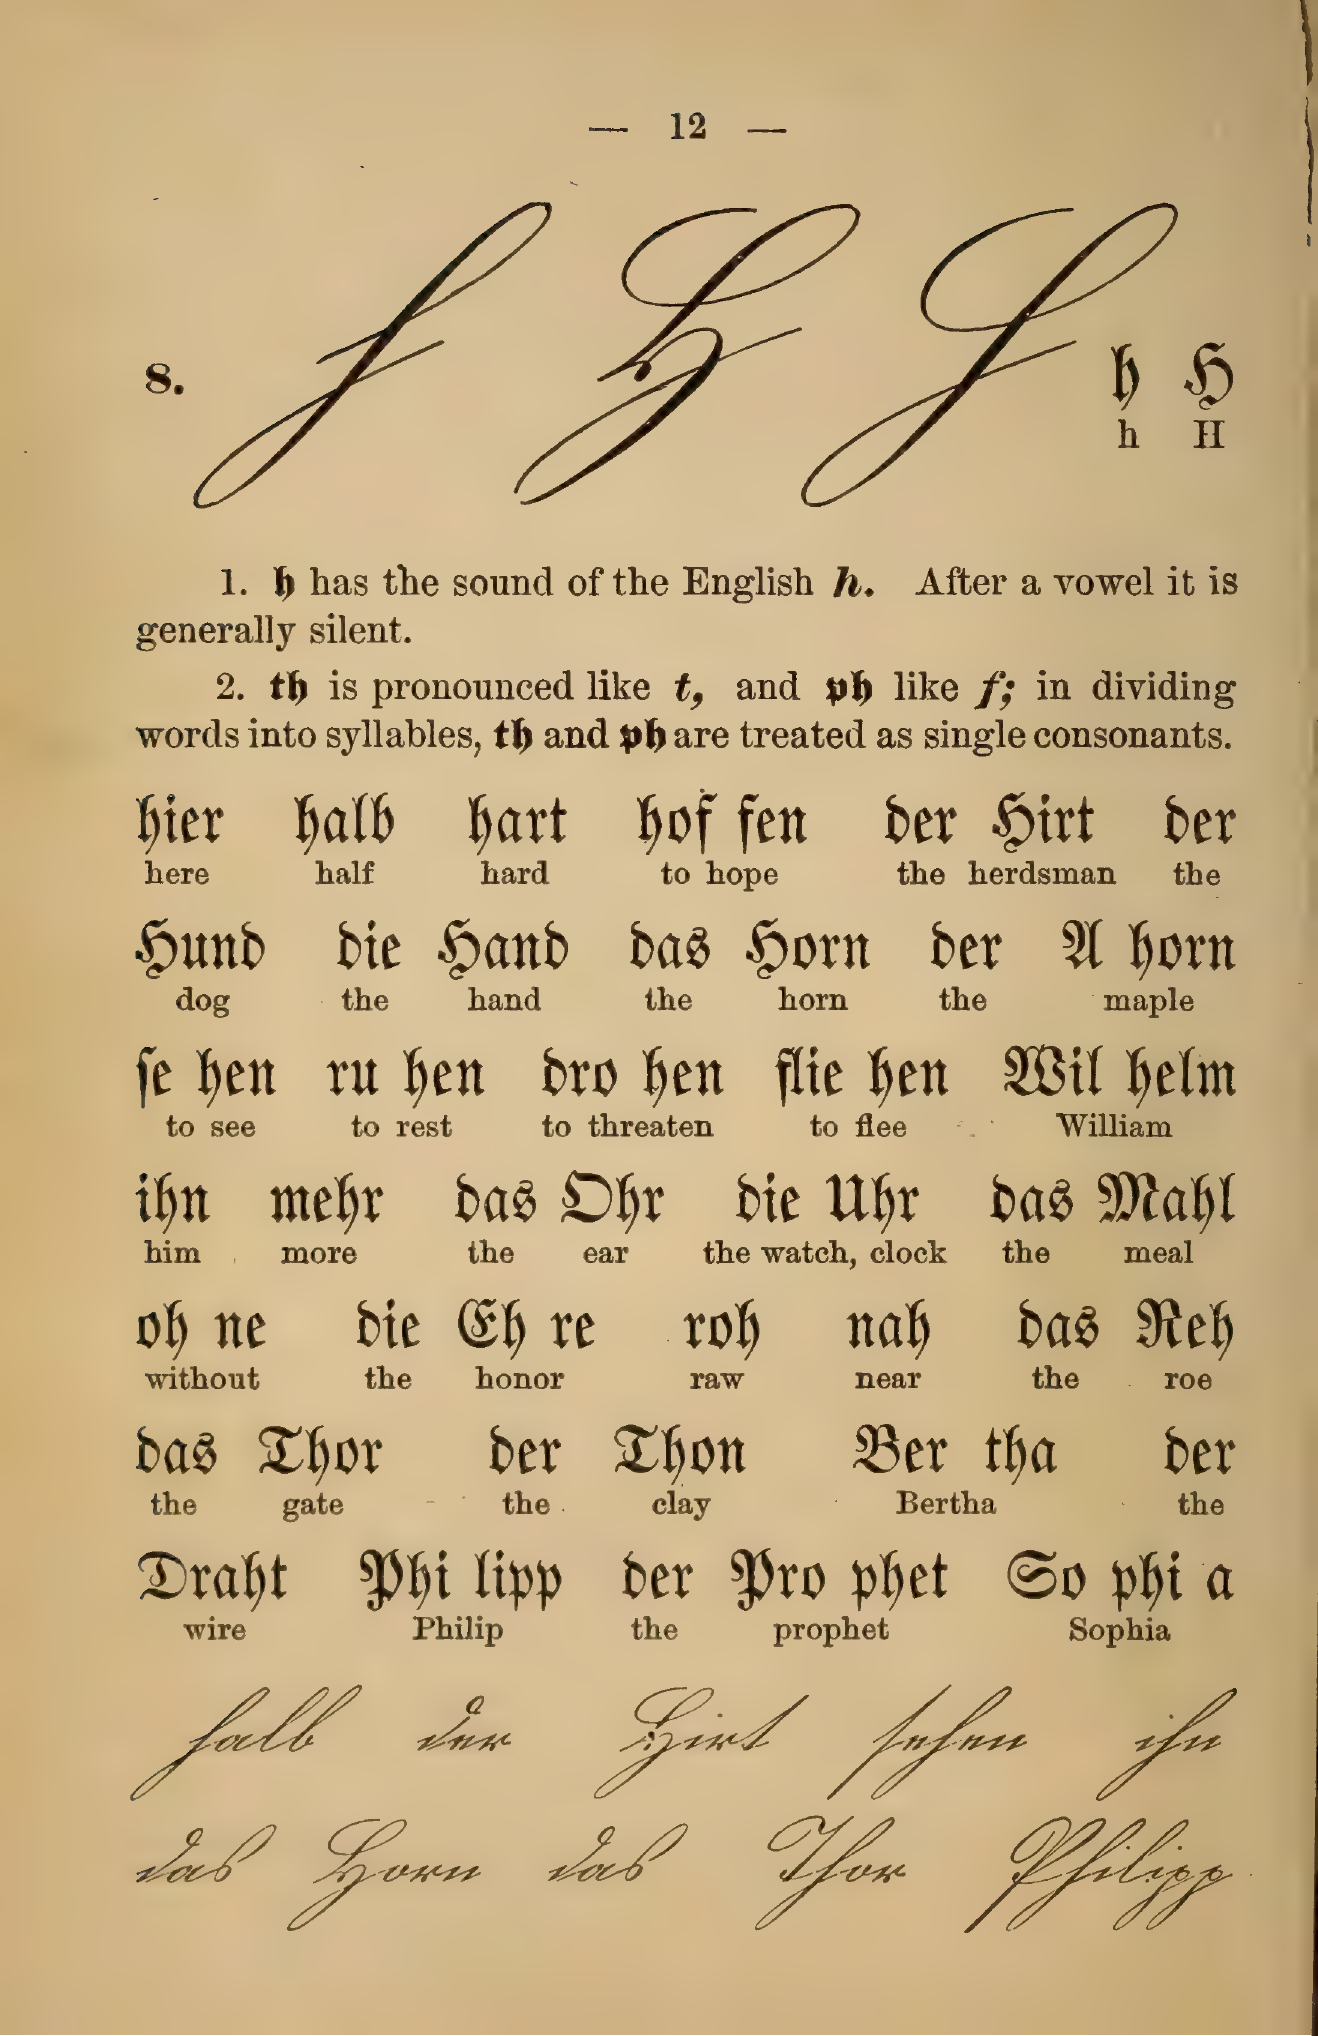 — 12 —
8. h H H h H
h H
1. h has the sound of the English h. After a vowel it is
generally silent.
2. th is pronounced like t, and ph like f; in dividing
words into syllables, th and ph are treated as single consonants.
hier halb hart hof fen der Hirt der
here half hard to hope the herdsman the
Hund die Hand das Horn der A horn
dog the hand the horn the maple
ſe hen ru hen dro hen flie hen Wil helm
to see to rest to threaten to flee William
ihn mehr das Ohr die Uhr das Mahl
him more the ear the watch, clock the meal
oh ne die Eh re roh nah das Reh
without the honor raw near the roe
das Thor der Thon Ber tha der
the gate the clay Bertha the
Draht Phi lipp der Pro phet So phi a
wire Philip the prophet Sophia
halb der Hirt ſehen ihn
das Horn das Thor Philipp